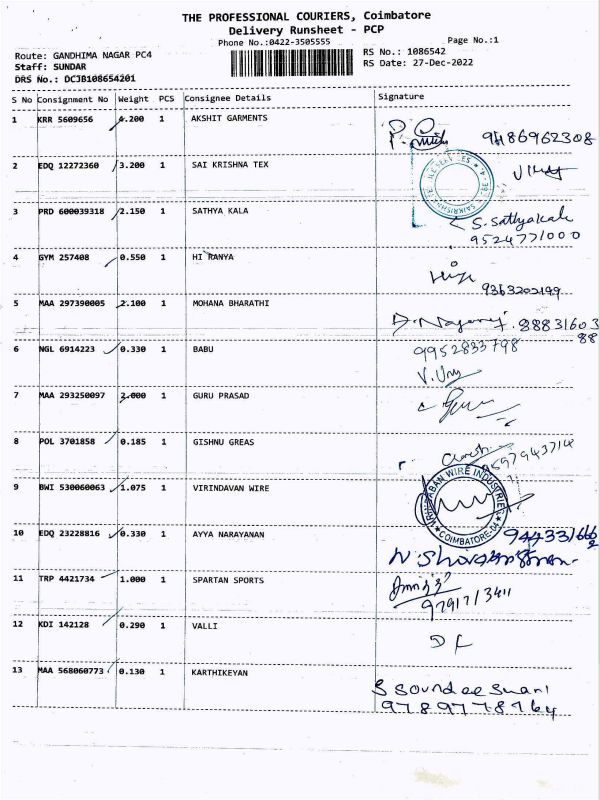 THE PROFESSIONAL COURIERS, Coimbatore
Delivery Runsheet - PCP
Phone No.:0422-3505555
Page No.:1
Route: GANDHIMA NAGAR PC4
RS No.: 1086542
Staff: SUNDAR
RS Date: 27-Dec-2022
DRS No.: DCJB108654201
S No Consignment No Weight PCS Consignee Details Signature
1 KRR 5609656 4.200 1 AKSHIT GARMENTS
9486962308
2 EDQ 12272360 3.200 1 SAI KRISHNA TEX
3 PRD 600039318 2.150 1 SATHYA KALA
S. Sathyakala
9524771000
4 GYM 257408 0.550 1 HI RANYA
9363202199
5 MAA 297390005 2.100 1 MOHANA BHARATHI
A. Nagaraj. 88831603
88
6 NGL 6914223 0.330 1 BABU
9952833798
7 MAA 293250097 2.000 1 GURU PRASAD
8 POL 3701858 0.185 1 GISHNU GREAS
9597943714
9 BWI 530060063 1.075 1 VIRINDAVAN WIRE
WIRE INDUSTRIES
COIMBATORE-04
10 EDQ 23228816 0.330 1 AYYA NARAYANAN
11 TRP 4421734 1.000 1 SPARTAN SPORTS
9791713411
12 KDI 142128 0.290 1 VALLI
13 MAA 568060773 0.130 1 KARTHIKEYAN
S Soundeeswari
9789778764